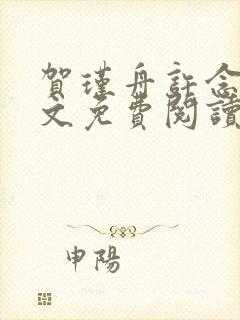 賀瑾舟許念
文免費閱讀
申陽